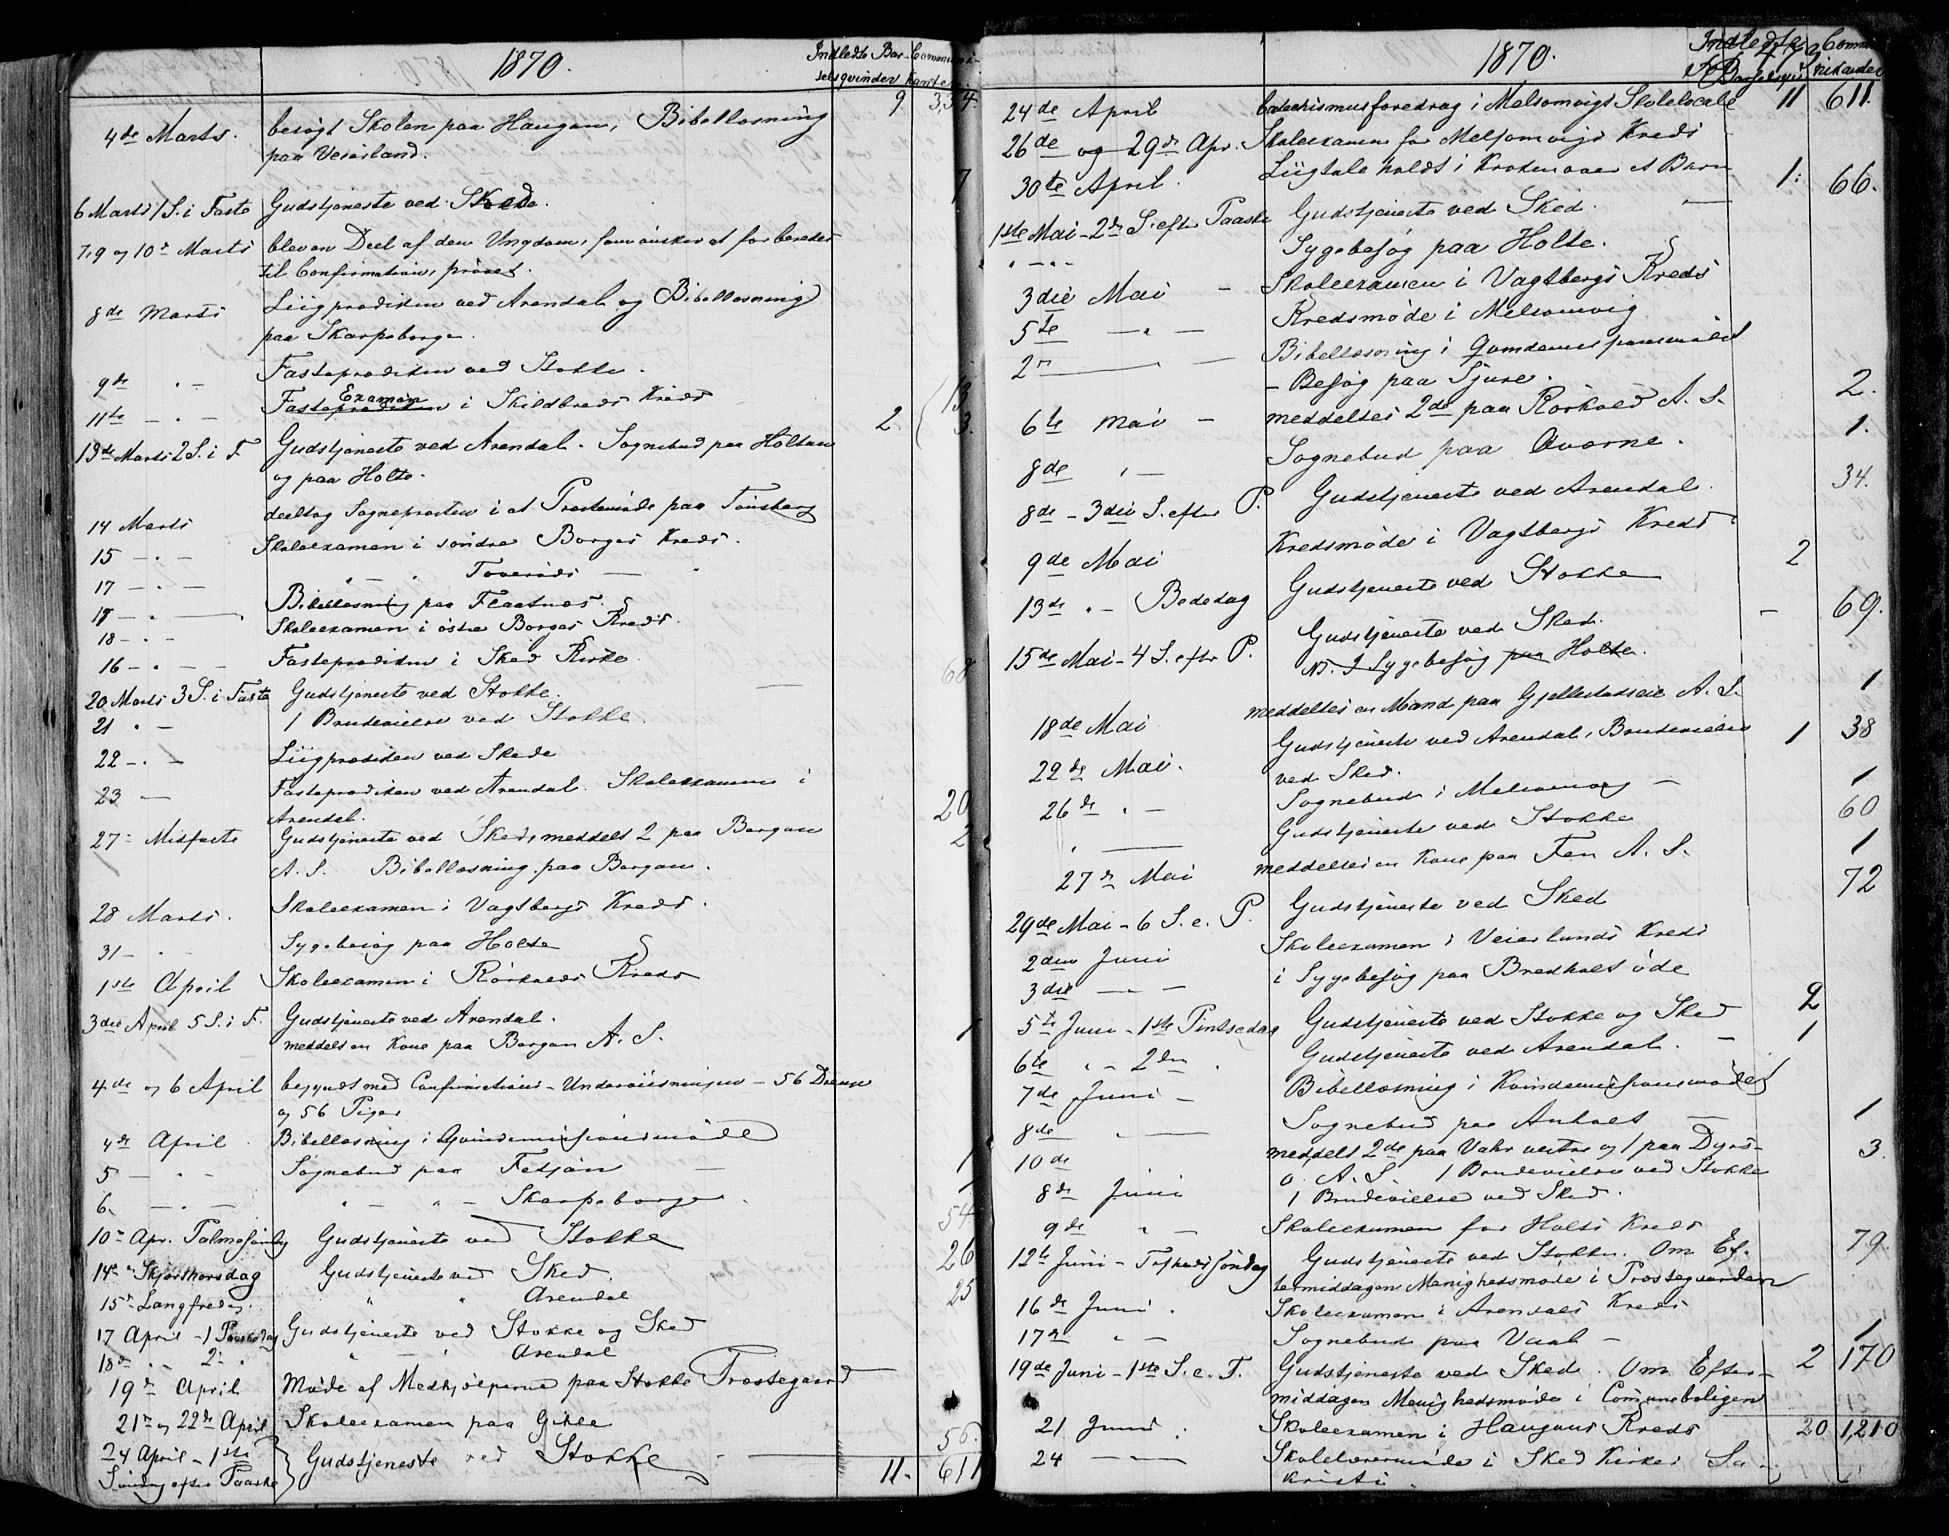 1870.
Indledte Bar-
selsqvinder
Communi-
kanter
9 334.
4de Marts. besøgt Skolen paa Haugan, Bibellæsning
paa Veierland.
7
6 Marts 1 S. i Faste Gudstjeneste ved Skede.
7, 9 og 10de Marts blev en Deel af den Ungdom, som ønsker at forberedes
til Confirmation, prøvet.
8de Marts Liigprædiken ved Arendal og Bibellæsning
paa Skarpeborge.
9de " - Fasteprædiken ved Stokke.
13
Examen
11te - " - Fasteprædiken i Skildbreds Kreds 2. 3.
13de Marts 2 S. i F. Gudstjeneste ved Arendal. Sognebud paa Holtan
og paa Holte.
14 Marts deeltog Sognepresten i et Prostemøde paa Tønsberg
15 - " - Skoleexamen i søndre Borges Kreds.
17 - " - " - " Toverøds -
18 - " - Bibellæsning paa Flaatnes.
18 - " - Skoleexamen i østre Borges Kreds.
16 - " - - Fasteprædiken i Sked Kirke.
68
20 Marts 3 S. i Faste Gudstjeneste ved Stokke.
21 " - 1 Brudevielse ved Stokke.
22 - " - Liigprædiken ved Skede
23 - Fasteprædiken ved Arendal. Skoleexamen i
Arendal. 20
27de Midfaste Gudstjeneste ved Sked, meddelt 2 paa Bergan 2
A. S. Bibellæsning paa Bergan.
28 Marts. Skoleexamen i Vagtbergs Kreds.
31 - " Sygebesøg paa Holte
1ste April Skoleexamen i Rørkolds Kreds
3die April 5 S. i F. Gudstjeneste ved Arendal.
meddelt en Kone paa Bergan A. S. 1
4de og 6 April begyndt med Confirmations-Underviisningen - 56 Drenge
og 56 Piger
4de April Bibellæsning i Qvindemissionsmøde
5 - " - Sognebud paa Fetjan - 1
6. - " - " - " - Skarpeborge. 1
54
10de Apr. Palmesøndag Gudstjeneste ved Stokke
26
14de Skjærthorsdag Gudstjeneste ved Sked.
25
15de Langfredag. " " Arendal
17 April - 1 Paaskedag Gudstjeneste ved Stokke og Sked
18de " - 2 " " - " Arendal
19de April Møde af Medhjælperne paa Stokke Prostegaard
21de og 22de April Skoleexamen paa Gjelle
24 April - 1ste
Søndag efter Paaske } Gudstjeneste ved Stokke - 56.
11. 611
1870.
Indledte
Barselqvin
Commu
nikanter
24de April Catechismusforedrag i Melsomvigs Skolelocale 11 611.
26de og 29de Apr. Skoleexamen for Melsomvigs Kreds
30te April. Liigtale holdt i Kroken over et Barn 1: 66.
1ste Mai - 2de S. efter Paaske Gudstjeneste ved Sked.
" - " - Sygebesøg paa Holte.
3die Mai - Skoleexamen i Vagtbergs Kreds
5te - " - Kredsmøde i Melsomvig
2de - Bibellæsning i Qvindemissionsmødet
- Besøg paa Sjure.
6te Mai - meddeltes 2de paa Rørkold A. S. 2.
8de " - Sognebud paa Averne. 1.
8de - 3die S. efter P. Gudstjeneste ved Arendal. 34.
9de Mai Kredsmøde i Vagtbergs Kreds
13de " - Bededag Gudstjeneste ved Stokke 2
15de Mai - 4 S. efter P. Gudstjeneste ved Sked. - 69.
Sygebesøg paa Holte.
18de Mai meddeltes en Mand paa Gjellestadseie A. S. 1
22de Mai. Gudstjeneste ved Arendal, Brudevielse 1 38
ved Sked.
26de " - Sognebud i Melsomvig - 1
" - Gudstjeneste ved Stokke 60
27de Mai meddeltes en Kone paa Fen A. S. 1
29de Mai - 6 S. e. P. Gudstjeneste ved Sked 72
2den Juni Skoleexamen i Veierlands Kreds
3die - " - 1 Sygebesøg paa Bredholt øde
5te Juni - 1ste Pintsedag Gudstjeneste ved Stokke og Sked 2
6te " - 2den. Gudstjeneste ved Arendal. - 1
7de Juni - Bibellæsning i Kvindemissionsmødet
8de " - Sognebud paa Anholt - 1
10de meddelt 2de paa Vahr vestre og 1 paa Dyrs- 3.
o. A. S. 1 Brudevielse ved Stokke
8de Juni 1 Brudevielse ved Sked.
9de " - Skoleexamen for Holts Kreds
12te Juni - Trefoldighedssøndag Gudstjeneste ved Stokke. Om Ef- 79.
termiddagen Menighedsmøde i Prostegaarden
16de Juni. Skoleexamen i Arendals Kreds
17de " - Sognebud paa Vaal - 1
19de Juni - 1ste S. e. T. Gudstjeneste ved Sked. Om Efter- 2 170
middagen Menighedsmøde i Comuneboligen
21 Juni. Skoleexamen i Haugans Kreds 20 1,210
24 - Skolelærermøde i Sked Kirkes Sa-
kristi.